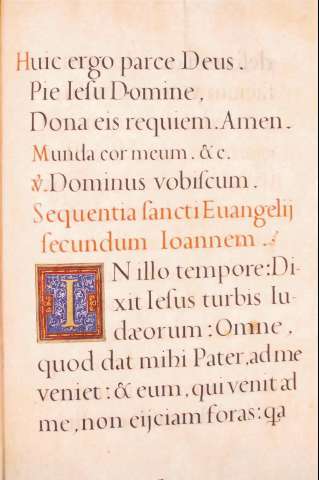 Huic ergo parce Deus.
Pie Iesu Domine,
Dona eis requiem. Amen.
Munda cor meum. &c.
℣. Dominus vobiſcum.
Sequentia ſancti Euangelij
ſecundum Ioannem.
IN illo tempore: Di-
xit Iesus turbis Iu-
dæorum: Omne,
quod dat mihi Pater, ad me
veniet: & eum, qui venit ad
me, non eijciam foras: qa